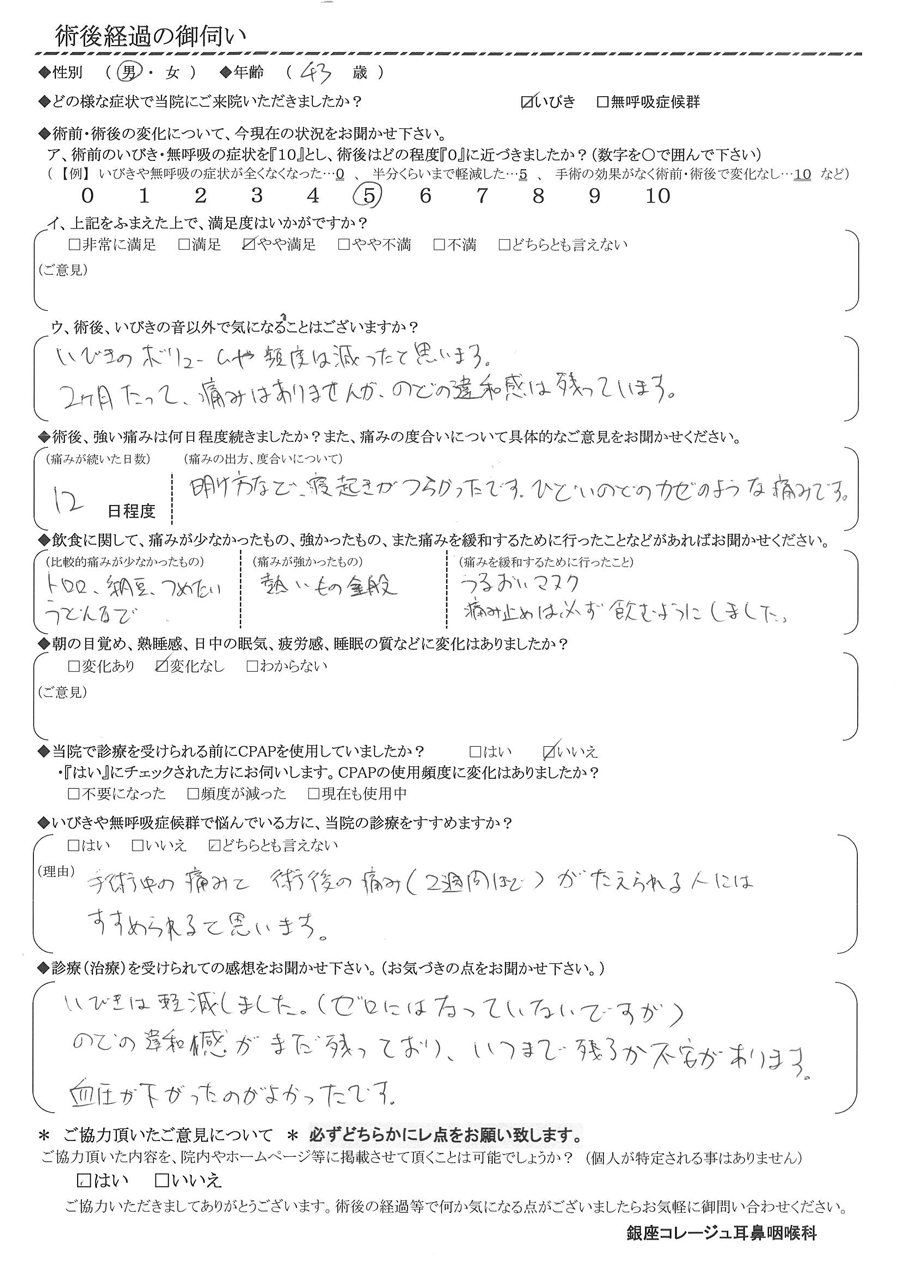 術後経過の御伺い
◆性別 （ 男 ・ 女 ） ◆年齢 （ 43 歳 ）
◆どの様な症状で当院にご来院いただきましたか？ ☑いびき □無呼吸症候群
◆術前・術後の変化について、今現在の状況をお聞かせ下さい。
ア、術前のいびき・無呼吸の症状を『10』とし、術後はどの程度『0』に近づきましたか？（数字を〇で囲んで下さい）
（ 【例】 いびきや無呼吸の症状が全くなくなった…0 、 半分くらいまで軽減した…5 、 手術の効果がなく術前・術後で変化なし…10 など）
0 1 2 3 4 5 6 7 8 9 10
イ、上記をふまえた上で、満足度はいかがですか？
□非常に満足 □満足 ☑やや満足 □やや不満 □不満 □どちらとも言えない
（ご意見）
ウ、術後、いびきの音以外で気になることはございますか？
いびきのボリュームや頻度は減ったと思います。
2ヶ月たって、痛みはありませんが、のどの違和感は残っています。
◆術後、強い痛みは何日程度続きましたか？また、痛みの度合いについて具体的なご意見をお聞かせください。
（痛みが続いた日数） （痛みの出方、度合いについて）
12 日程度 明け方など、寝起きがつらかったです。ひどいのどのカゼのような痛みです。
◆飲食に関して、痛みが少なかったもの、強かったもの、また痛みを緩和するために行ったことなどがあればお聞かせください。
（比較的痛みが少なかったもの） （痛みが強かったもの） （痛みを緩和するために行ったこと）
トロロ、納豆、つめたい 熱いもの全般 うるおいマスク
うどんなど 痛み止めは必ず飲むようにしました。
◆朝の目覚め、熟睡感、日中の眠気、疲労感、睡眠の質などに変化はありましたか？
□変化あり ☑変化なし □わからない
（ご意見）
◆当院で診療を受けられる前にCPAPを使用していましたか？ □はい ☑いいえ
・『はい』にチェックされた方にお伺いします。CPAPの使用頻度に変化はありましたか？
□不要になった □頻度が減った □現在も使用中
◆いびきや無呼吸症候群で悩んでいる方に、当院の診療をすすめますか？
□はい □いいえ ☑どちらとも言えない
（理由） 手術中の痛みと 術後の痛み（2週間ほど）がたえられる人には
すすめられると思います。
◆診療（治療）を受けられての感想をお聞かせ下さい。（お気づきの点をお聞かせ下さい。）
いびきは軽減しました。（ゼロにはなっていないですが）
のどの違和感がまだ残っており、いつまで残るか不安があります。
血圧が下がったのがよかったです。
＊ ご協力頂いたご意見について ＊ 必ずどちらかにレ点をお願い致します。
ご協力頂いた内容を、院内やホームページ等に掲載させて頂くことは可能でしょうか？ （個人が特定される事はありません）
☑はい □いいえ
ご協力いただきましてありがとうございます。術後の経過等で何か気になる点がございましたらお気軽に御問い合わせください。
銀座コレージュ耳鼻咽喉科